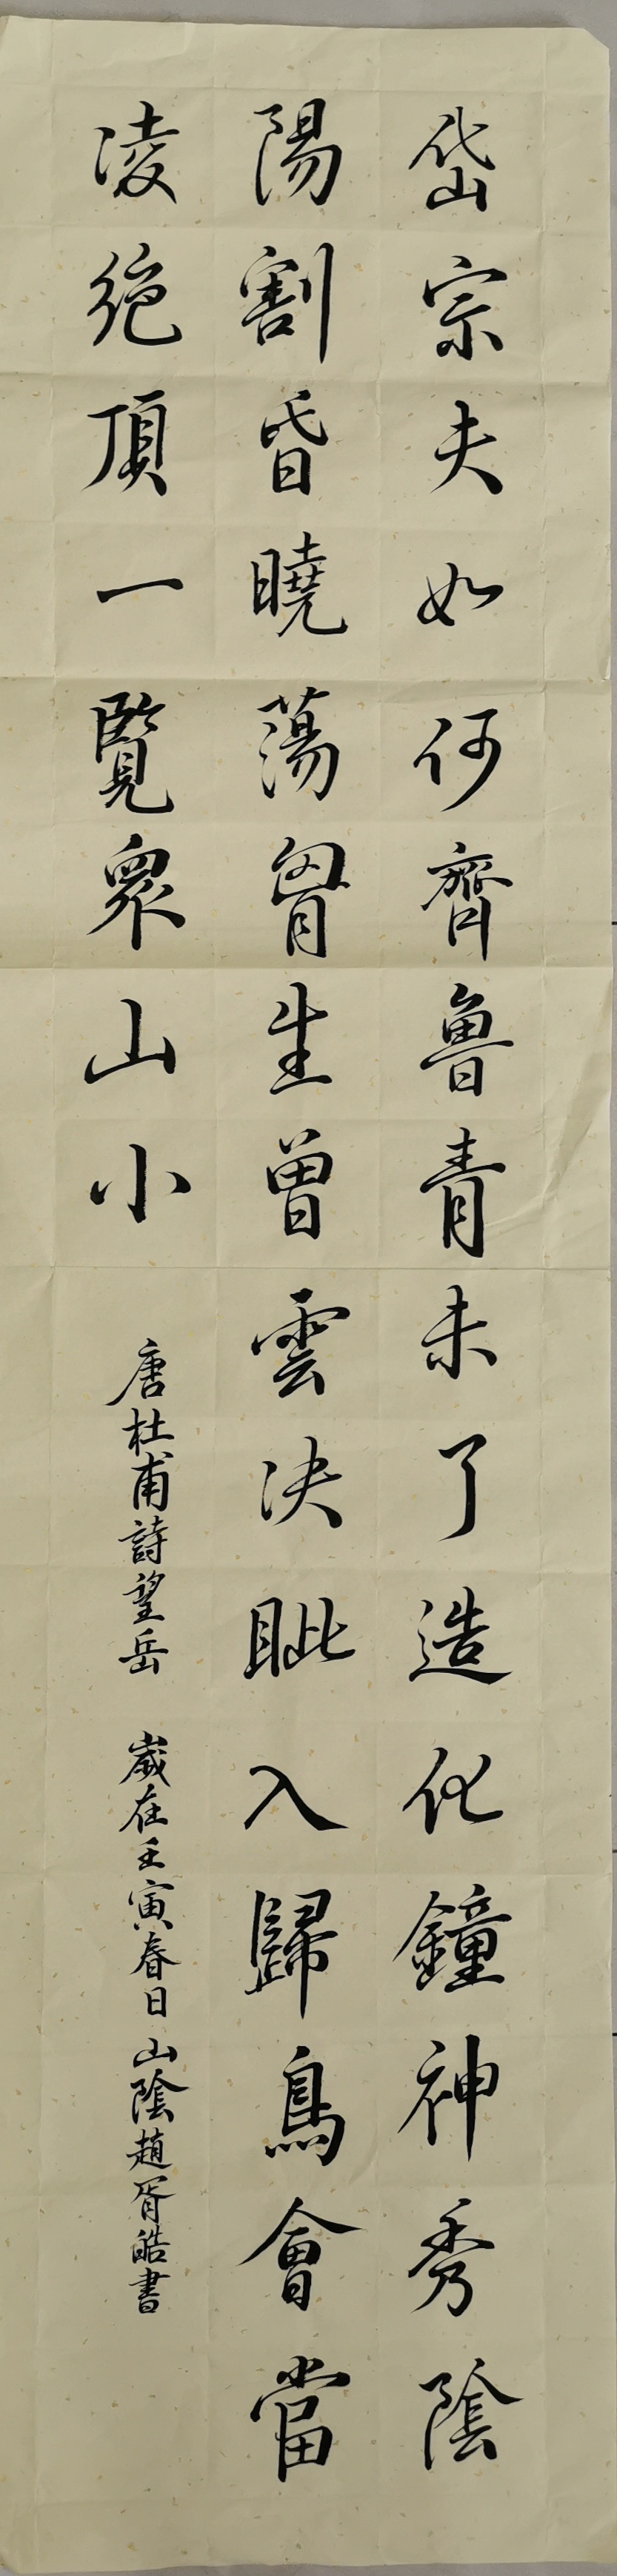 岱宗夫如何齊魯青未了造化鐘神秀陰
陽割昏曉蕩胷生曽雲決眦入歸鳥會當
凌絶頂一覽衆山小
唐杜甫詩望岳 歲在壬寅春日山陰趙胥皓書